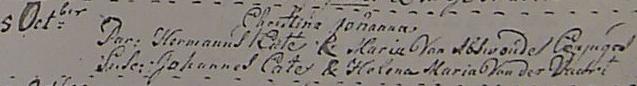 5 Octbr: Christina Johanna
Par: Hermannus Kater & Maria Van Abswoudes Conjuges
Susc: Johannes Cater & Helena Maria Van der Vaart